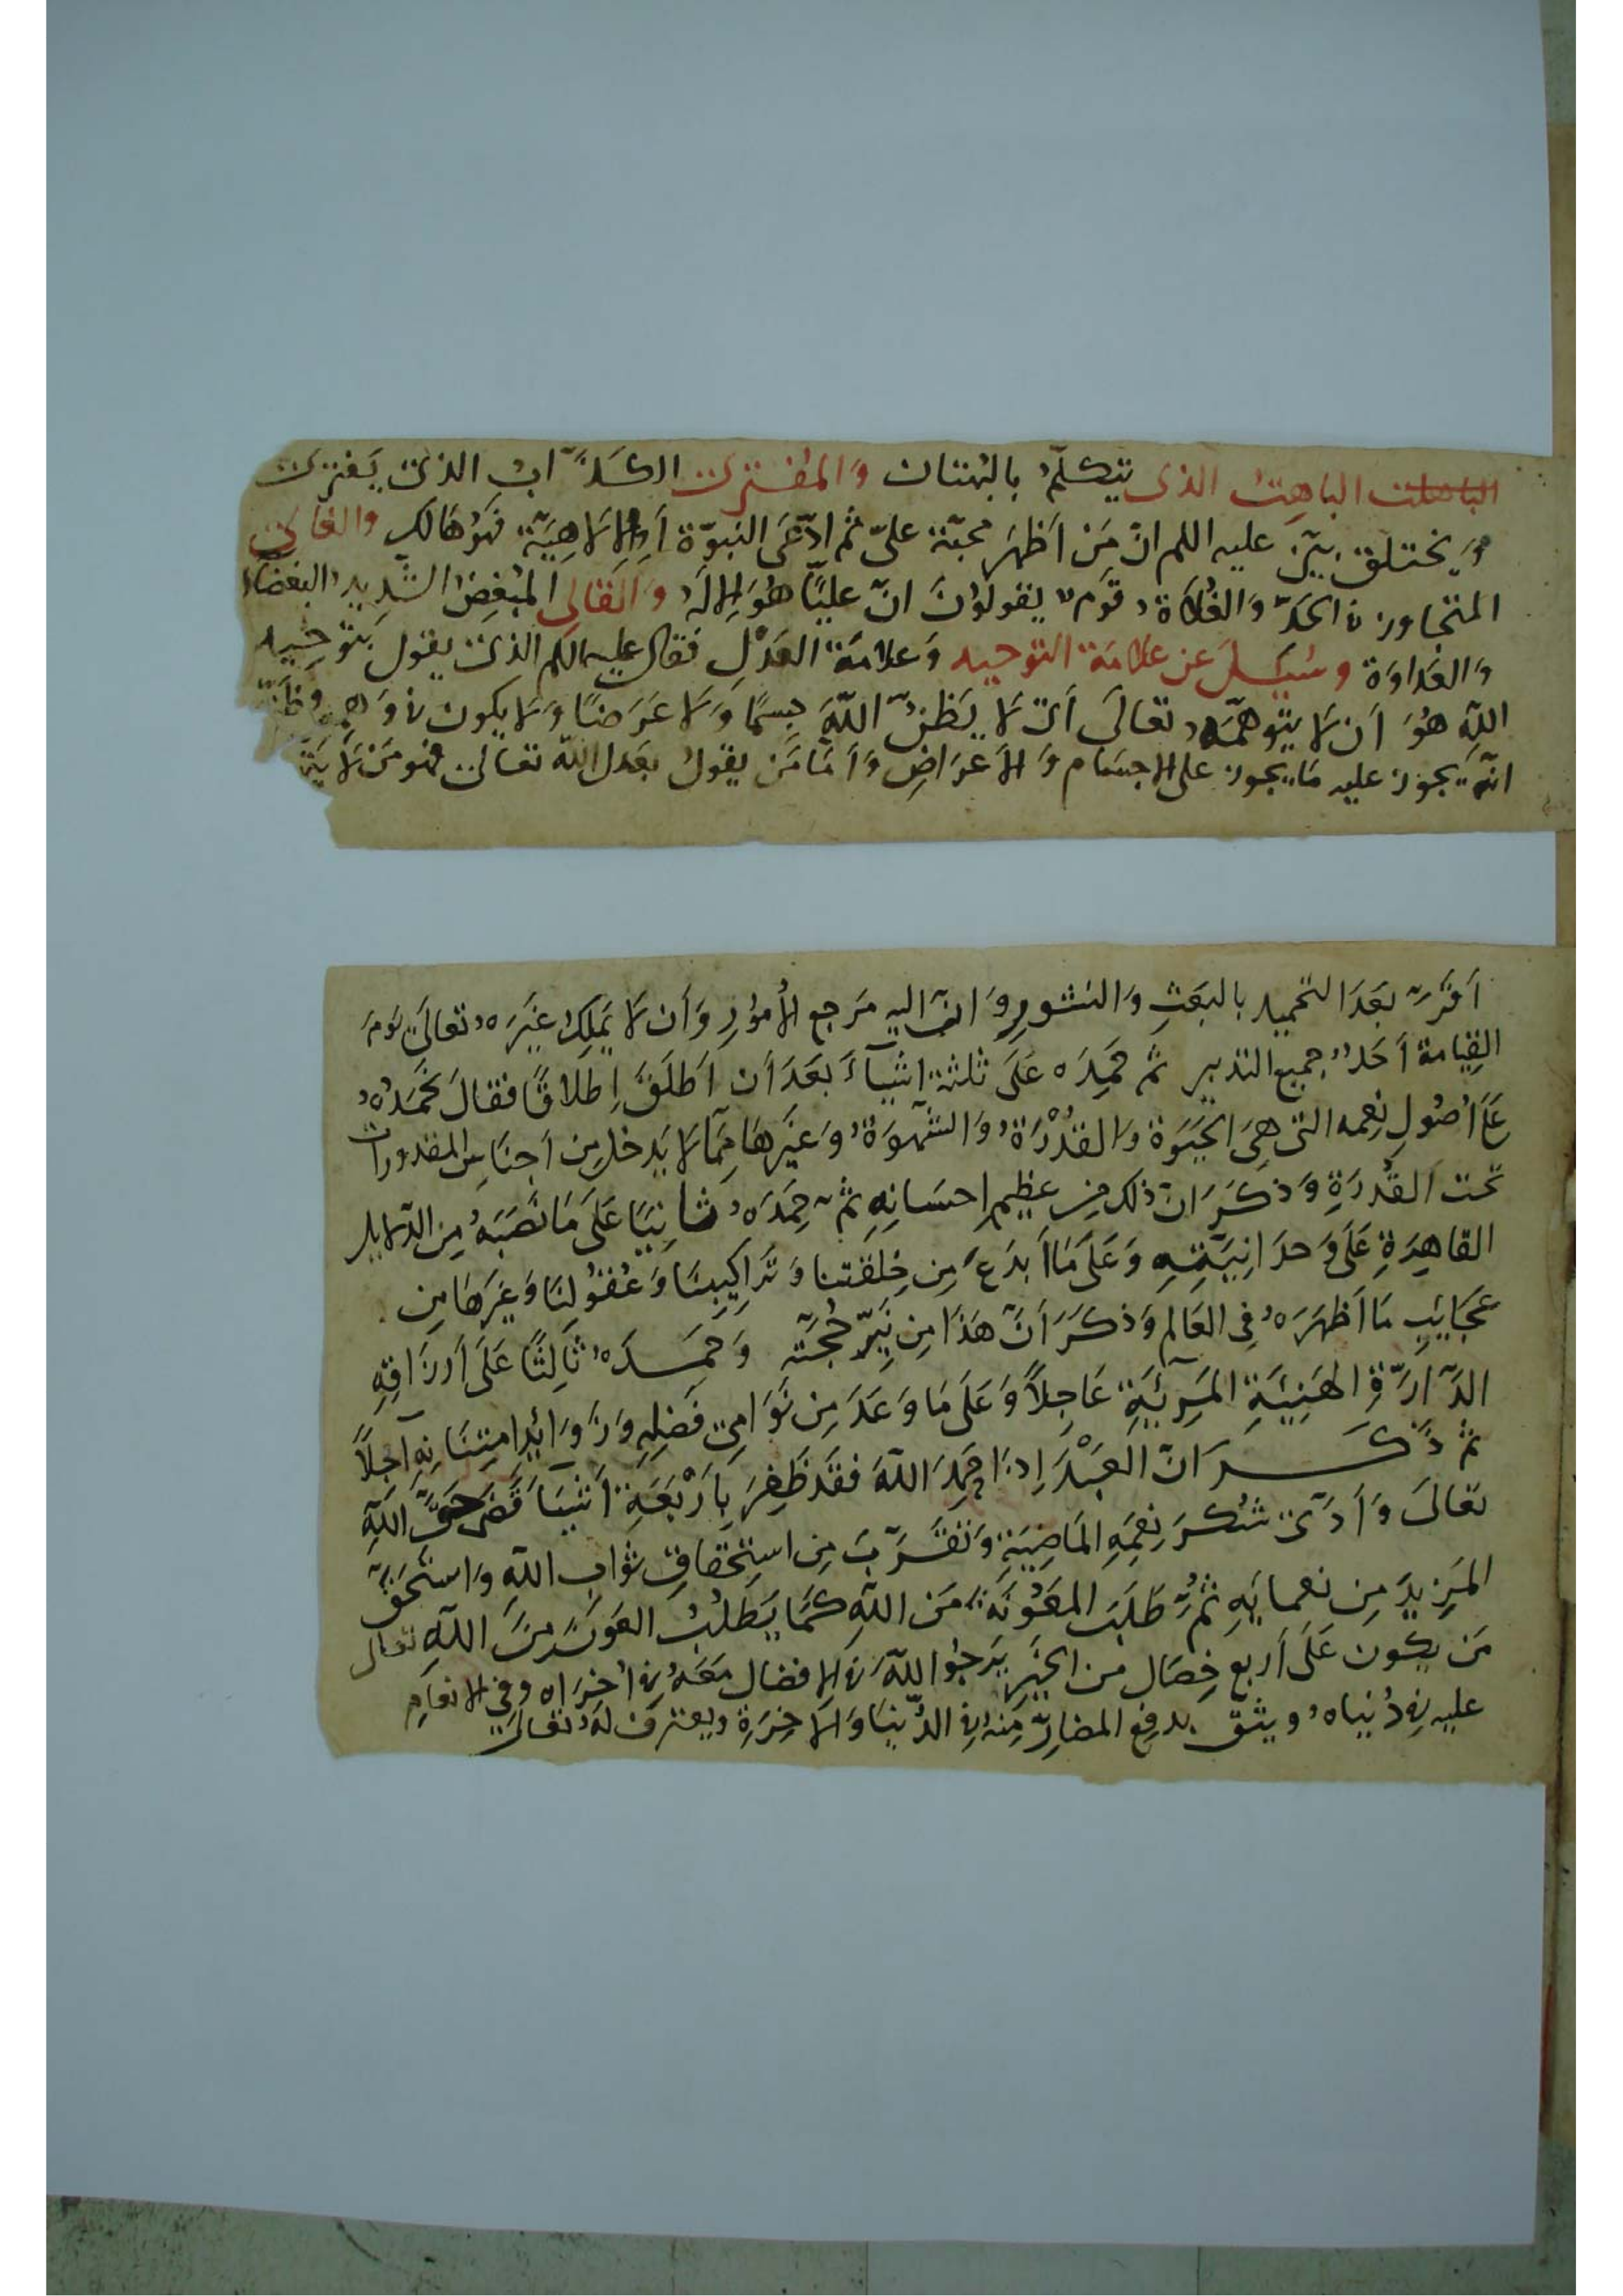 الباهلت الباهِتُ الذى يتكلّمُ بالبُهتان وَالمُفترى الكَذّابُ الذى يَفترى
وَيختلق بيّن عليه اللم انّ مَن اَظهَر محبّة علىّ ثم ادّعَى النبوّة اَو الالاهِيّة فهُو هَالك والغالى
المتجاوز الحَدّ وَالغُلاة قومٌ يقولوُنَ انّ عليًّا هُوَ الالهُ وَالقالى المُبغِضُ الشَّدِيد البغضاء
وَالعَداوَة وسُئِلَ عن علامَة التوحيد وَعلامَة العَدْلِ فقال عليه اللم الذى يقول بتوحِيد
اللهِ هُوَ اَن لا يتوهّمهُ تعالَى اَى لا يَظنُّ اللهَ جسمًا وَلا عَرَضًا وَلا يكون فى وَهمِهِ وظنّه
انّهُ يجوز عليه مَا يجوز على الاجسَام وَالاَعرَاضِ وَاَمّا مَن يقولُ بعَدل الله تعالى فهُو مَن لا يتّ
اَقرَّ بعَدَ التحميد بالبَعَثِ وَالنشورِ وَانّ اليهِ مَرجع الاُمُورِ وَاَن لا يَملِكُ غيَرهُ تعالَى يَومَ
القِيامة اَحَدٌ جميع التدبير ثمّ حَمِدَه عَلَى ثلثة اشيَآءَ بعَدَ اَن اَطلَقَ اِطلاقًا فقالَ نَحمَدُهُ
عَلَى اُصُولِ نِعمه التى هِىَ الحَيَوة وَالقدُْرَةُ وَالشَّهوَةُ وَغيَرهَا مِمّا لا يَدخل مِن اَجنَاسِ المقدورات
تحت القُدرَةِ وَذكَرَ انّ ذلك مِن عظيم احسَانِهِ ثمّ حَمِدَهُ ثَانِيًا عَلَى مَا نَصَبَهُ مِن الدّلايل
القاهِرَةِ عَلَى وَحدَانِيَّتِهِ وَعَلَى مَا اَبدَعَ مِن خِلقتنا وَتَراكِيبِنَا وَعُقُولِنَا وَغيَرهَا مِن
عَجَايَبِ مَا اَظهَرَهُ فِى العَالَم وَذكَرَ اَنّ هَذَا مِن نَيّر حُجّته وَحَمِدَهُ ثَالِثًا عَلَى اَرزَاقِهِ
الدَّارّةِ الهَنِيَّةِ المَرِيَّةِ عَاجِلاً وَعَلَى مَا وَعَدَ مِن نَوَامِى فَضلِهِ وَزَوَائِدِ امتِنَانِهِ آجِلاً
ثم ذَكَرَ انّ العَبْدَ اِذا حَمِدَ اللهَ فقَد ظَفِرَ بِاَرْبَعَةِ اَشيَا قَضَى حَقَّ اللهِ
تعَالَى وَاَدّى شُكرَ نِعَمِهِ المَاضِيَةِ وَتَقَرَّبَ مِن استِحقَاقِ ثَوَابِ اللهِ وَاستَحَقّ
المَزِيدَ مِن نعمايَهِ ثمُّ طَلَبَ المَعُونَةَ مَنَ اللهِ كَمَا يَطلُبُ العَونَ مِنَ اللهِ تعالى
مَن يكون عَلَى اَربع خِصَال من الخَيرِ يَرجُوا اللهَ فى الافضال مَعَهُ فى اُخرَاه وفِى الانعَامِ
عليه فى دُنياهُ ويثق بدفع المضارّ مِنهُ فى الدُّنيَا وَالاخِرَةِ ويعترف لَهُ تعَالَى